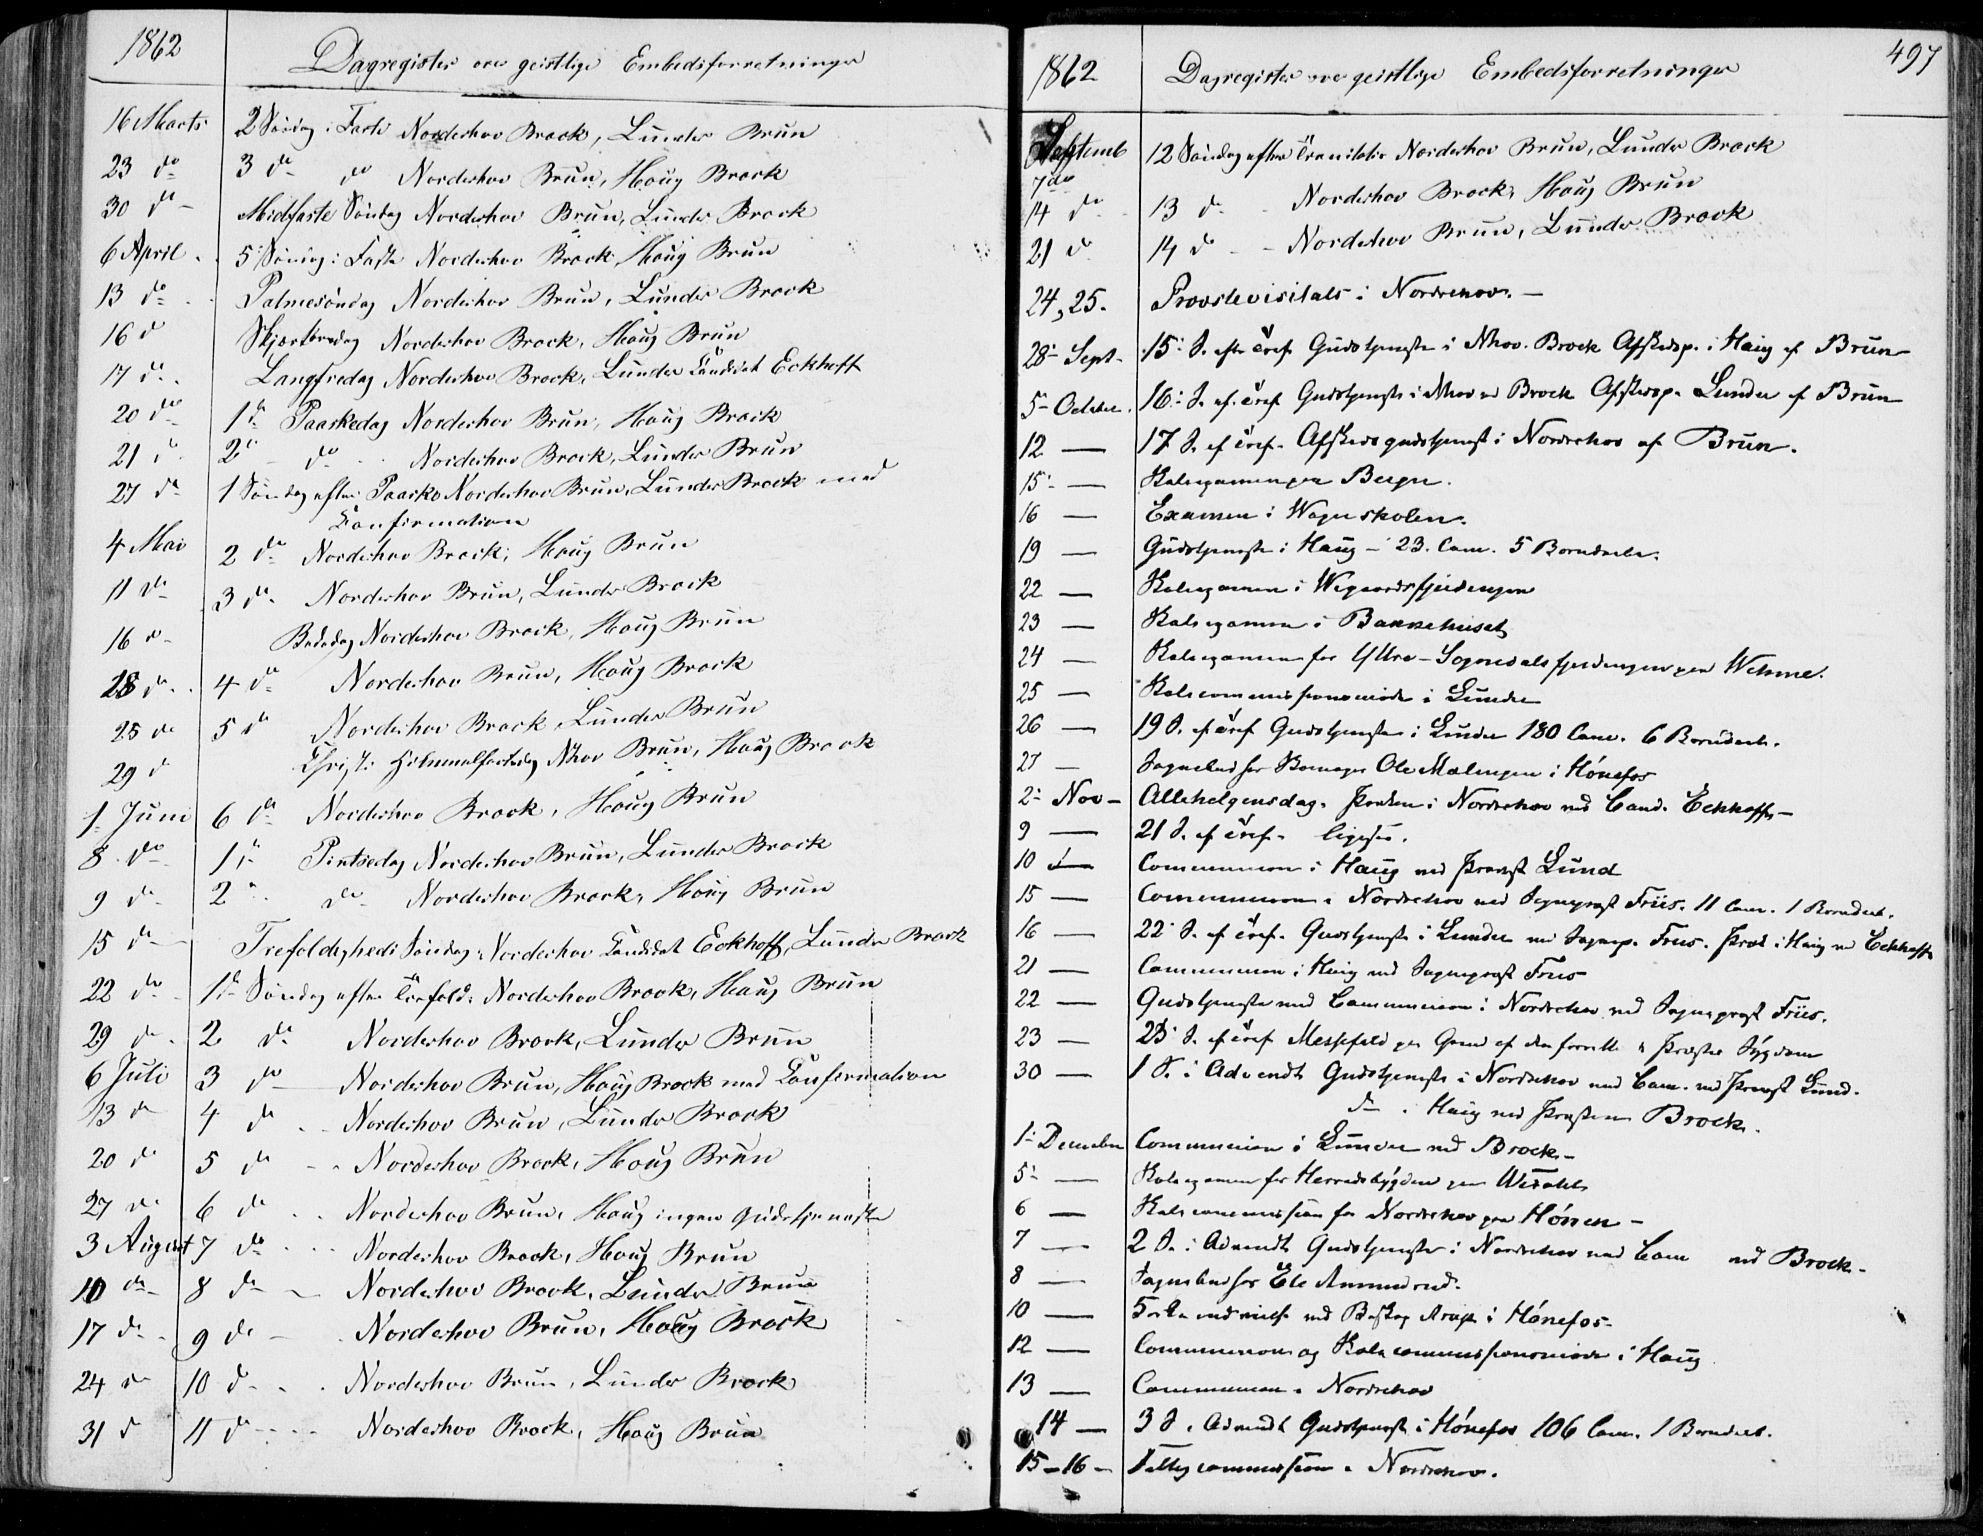 1862
Dagregister over geistlige Embedsforretninger
16 Marts 2 Søndag i Faste Norderhov Brock, Lunder Brun
23 do 3 do do Norderhov Brun, Haug Brock
30 do Midfaste Søndag Norderhov Brun, Lunder Brock
6 April 5 Søndag i Faste Norderhov Brock, Haug Brun
13 do Palmesöndag Norderhov Brun, Lunder Brock
16 do Skjærtorsdag Norderhov Brock, Haug Brun
17 do Langfredag Norderhov Brock, Lunder Candidat Eckhoff
20 do 1ste Paaskedag Norderhov Brun, Haug Brock
21 do 2den do Norderhov Brock, Lunder Brun
27 do 1 Søndag efter Paaske Norderhov Brun, Lunder Brock med
Confirmation
4 Mai 2 do Norderhov Brock, Haug Brun
11 do 3 do Norderhov Brun, Lunder Brock
16 do Bededag Norderhov Brock, Haug Brun
18 do 4 do Norderhov Brun, Haug Brock
25 do 5 do Norderhov Brock, Lunder Brun
29 do Christi Himmelfartsdag Nhov Brun, Haug Brock
1 Juni 6 do Norderhov Brock, Haug Brun
8 do 1ste Pintsedag Norderhov Brun, Lunder Brock
9 do 2den do Norderhov Brock, Haug Brun
15 do Trefoldigheds Søndag Norderhov Candidat Eckhoff, Lunder Brock
22 do 1ste Søndag efter Trefold: Norderhov Brock, Haug Brun
29 do 2 do Norderhov Brock, Lunder Brun
6 Juli 3 do Norderhov Brun, Haug Brock med Confirmation
13 do 4 do Norderhov Brun, Lunder Brock
20 do 5 do Norderhov Brock, Haug Brun
27 do 6 do Norderhov Brun, Haug ingen Gudstjeneste
3 August 7 do Norderhov Brock, Haug Brun
10 do 8 do Norderhov Brock, Lunder Brun
17 do 9 do Norderhov Brun, Haug Brock
24 do 10 do Norderhov Brun, Lunder Brock
31 do 11 do Norderhov Brock, Haug Brun
497
1862
Dagregister over geistlige Embedsforretninger
Septemb 12 Søndag efter Trinitatis Norderhov Brun, Lunder Brock
7de
14 do 13 do Norderhov Brock, Haug Brun
21 do 14 do Norderhov Brun, Lunder Brock
24, 25. Provstevisitats i Norderhov.
28 Sept. 15 S. efter Tref. Gudstjeneste i Nhov. Brock Afskedsp. i Haug af Brun
5 October 16 S. ef. Tref. Gudstjeneste i Nhov ved Brock Afskedsp. Lunder af Brun
12 — 17 S. ef Tref. Afskedsgudstjenest i Norderhov af Brun.
15 — Skoleexamen paa Berger.
16 — Examen i Wagerskolen.
19 — Gudstjeneste i Haug — 23. Com. 5 Barnedaab.
22 — Skoleexamen i Wegaardsfjerdingen
23 — Skoleexamen i Bakkehuset
24 — Skoleexamen for Yttre-Sognedalsfjerdingen paa Wehme.
25 — Skolecommissionsmöde i Lunder
26 — 19 S. ef Tref Gudstjeneste i Lunder 180 Com. 6 Barnedaab.
27 — Sognebud for Ole Mælingen i Hónefos
2 Nov — Allehelgensdag. Præken i Norderhov ved Cand. Eckhoff
9 — 21 S. ef Tref. ligesaa.
10 — Communion i Haug ved Provst Lund
15 — Communion i Norderhov ved Sognepræst Friis. 11 Com. 1 Barnedaab.
16 — 22 S. ef Tref. Gudstjeneste i Lunder ved Sognep. Friis. Præd. i Haug ved Eckhoff
21 — Communion i Haug ved Sognepræst Friis
22 — Gudstjeneste med Communion i Norderhov ved Sognepræst Friis.
23 — 23 S. ef Tref Messefald paa Grund af Præstes Sygdom
30 — 1 S. i Advendt Gudstjeneste i Norderhov med Com. ved Provst Lund.
do i Haug ved Præsten Brock.
1 December Communion i Lunder ved Brock
5 — Skoleexamen for Herredsbygden paa Wesetel
6 — Skolecommission for Norderhov paa Hónen
7 — 2 S. i Advendt Gudstjeneste i Norderhov med Com ved Brock
8 — Sognebud for Ole Ammundrud.
10 — Kirkeindvielse ved Biskop Arup i Hónefos
12 — Communion og Skolecommissionsmöde i Haug
13 — Communion i Norderhov
14 — 3 S. Advendt Gudstjeneste i Hónefos 106 Com. 1 Barnedaab.
15-16 — Fattigcommission i Norderhov.